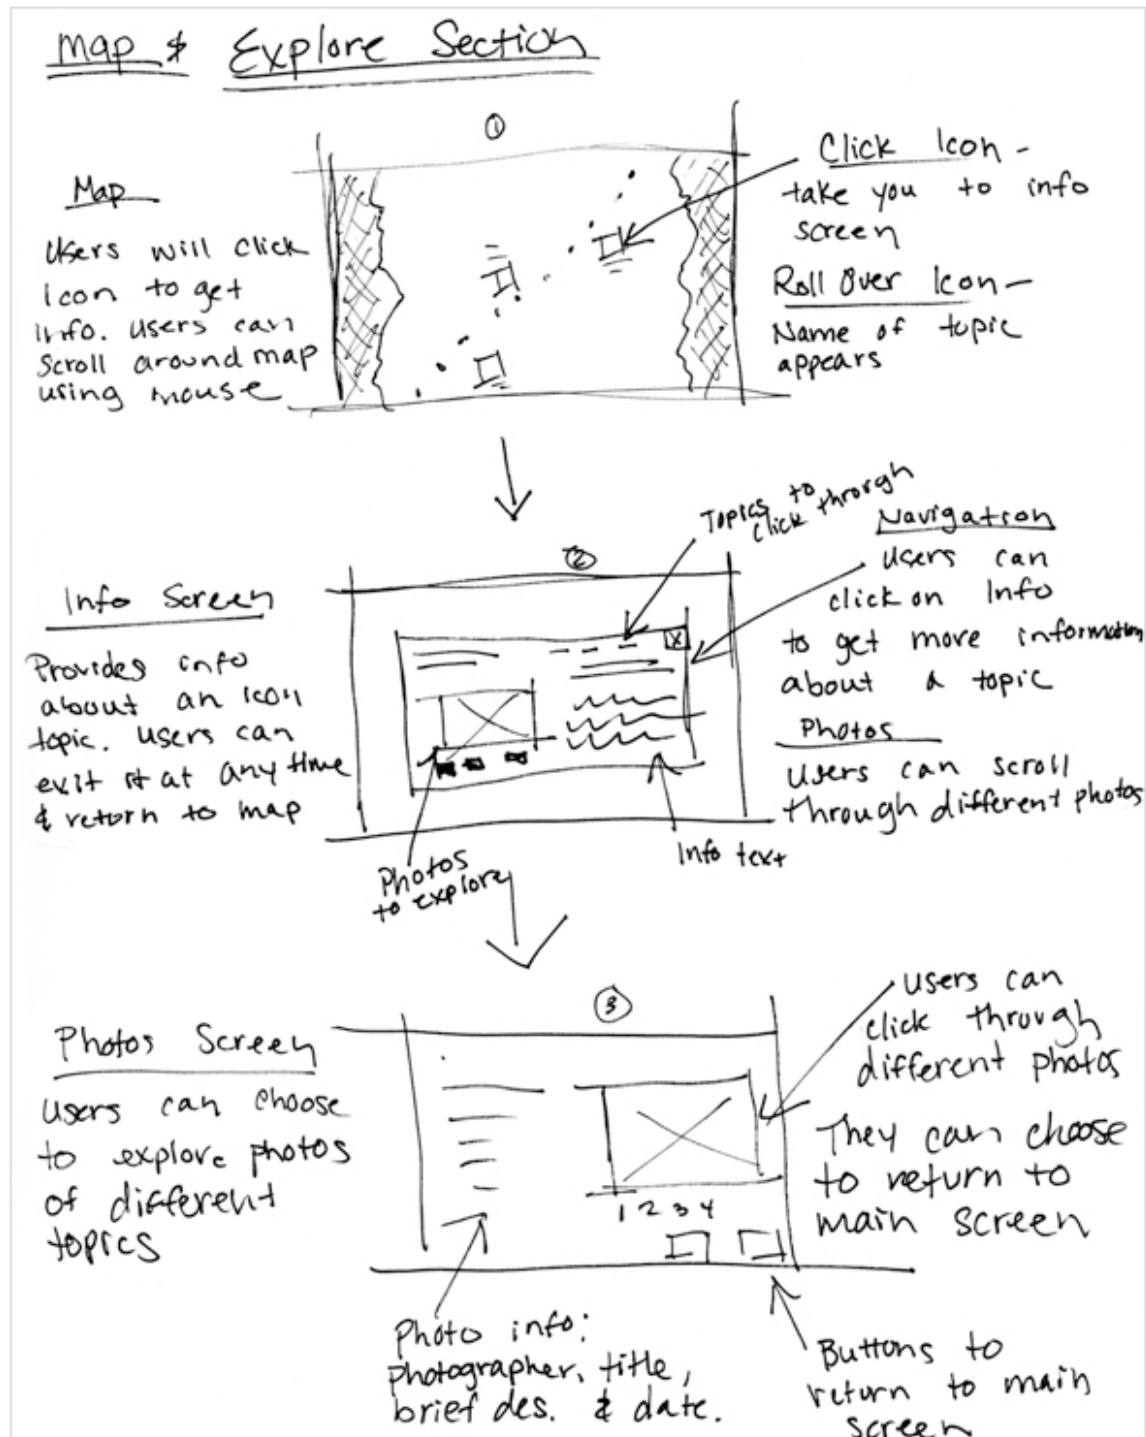 Map & Explore Section
①
Map
Users will click
Icon to get
Info. Users can
Scroll around map
using mouse
Click Icon -
take you to info
screen
Roll Over Icon -
Name of topic
appears
②
Topics to
click through
Info Screen
Provides info
about an icon
topic. Users can
exit it at any time
& return to map
X
Navigation
Users can
click on Info
to get more information
about a topic
Photos
Users can scroll
through different photos
Photos
to explore
Info text
③
Photos Screen
Users can choose
to explore photos
of different
topics
1 2 3 4
Users can
click through
different photos
They can choose
to return to
main screen
Photo info:
photographer, title,
brief des. & date.
Buttons to
return to main
screen